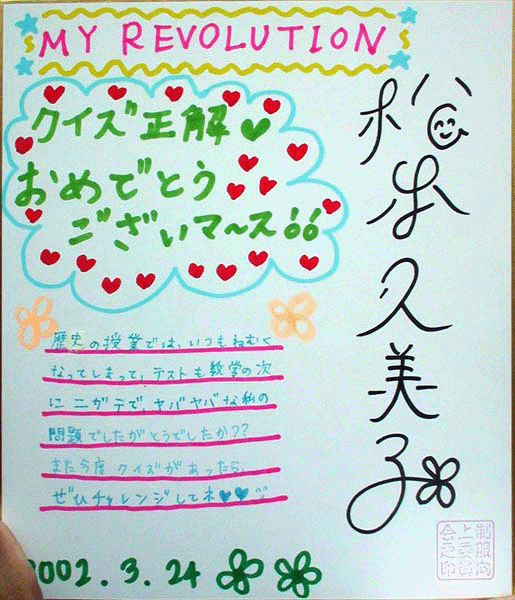 MY REVOLUTION
クイズ正解
おめでとう
ございマ〜ス!!
松本久美子
歴史の授業では、いつもねむく
なってしまって、テストも数学の次
に ニガテで、ヤバヤバな私の
問題でしたがどうでしたか??
また今度クイズがあったら、
ぜひチャレンジしてネ
2002.3.24
制服向
上委員
会之印